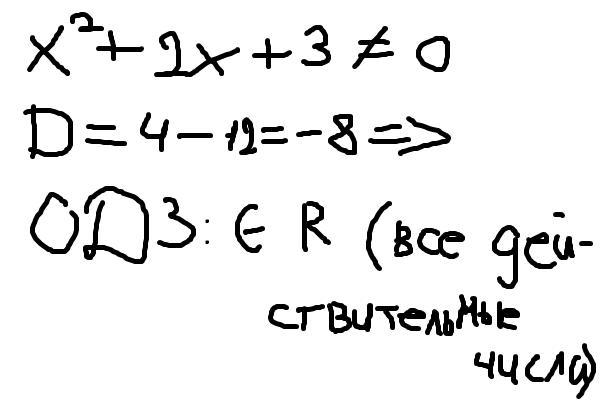 x²+2x+3≠0
D=4-12=-8=>
ОДЗ: ∈ R (все дей-
ствительные
числа)